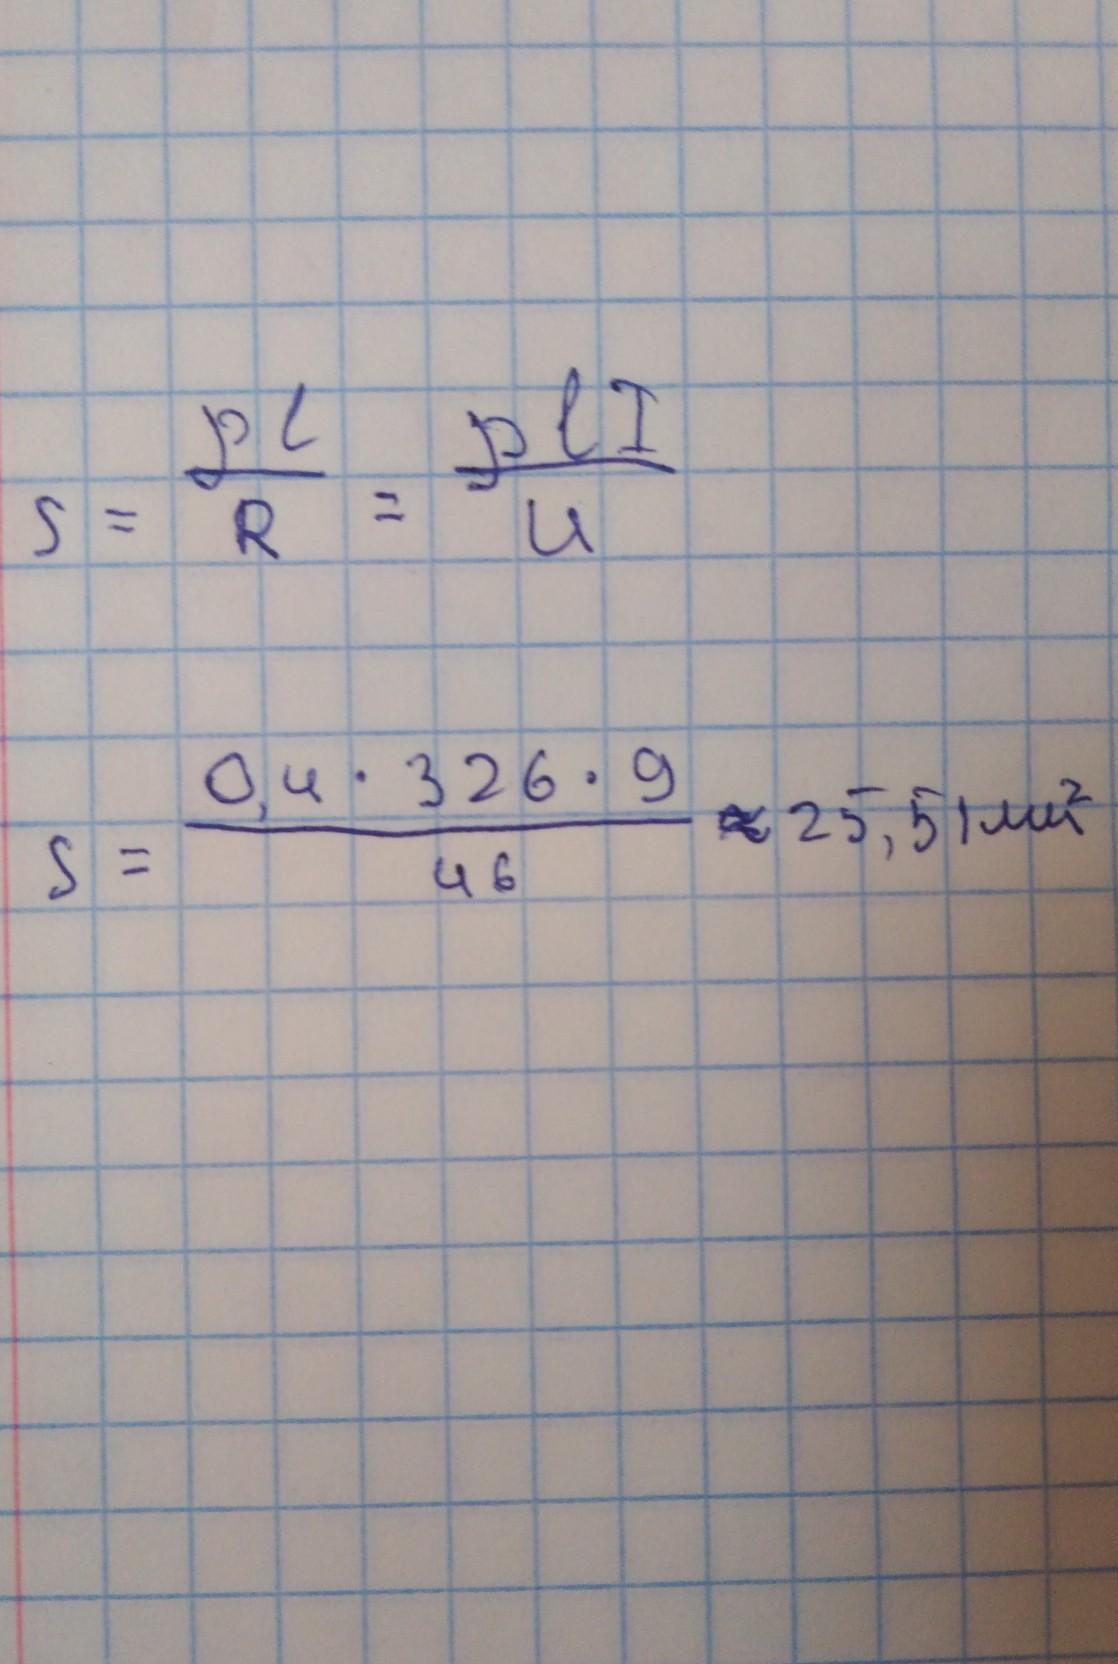 S = pl/R = plI/U
S = 0,4 · 326 · 9/46 ≈ 25,51 мм²